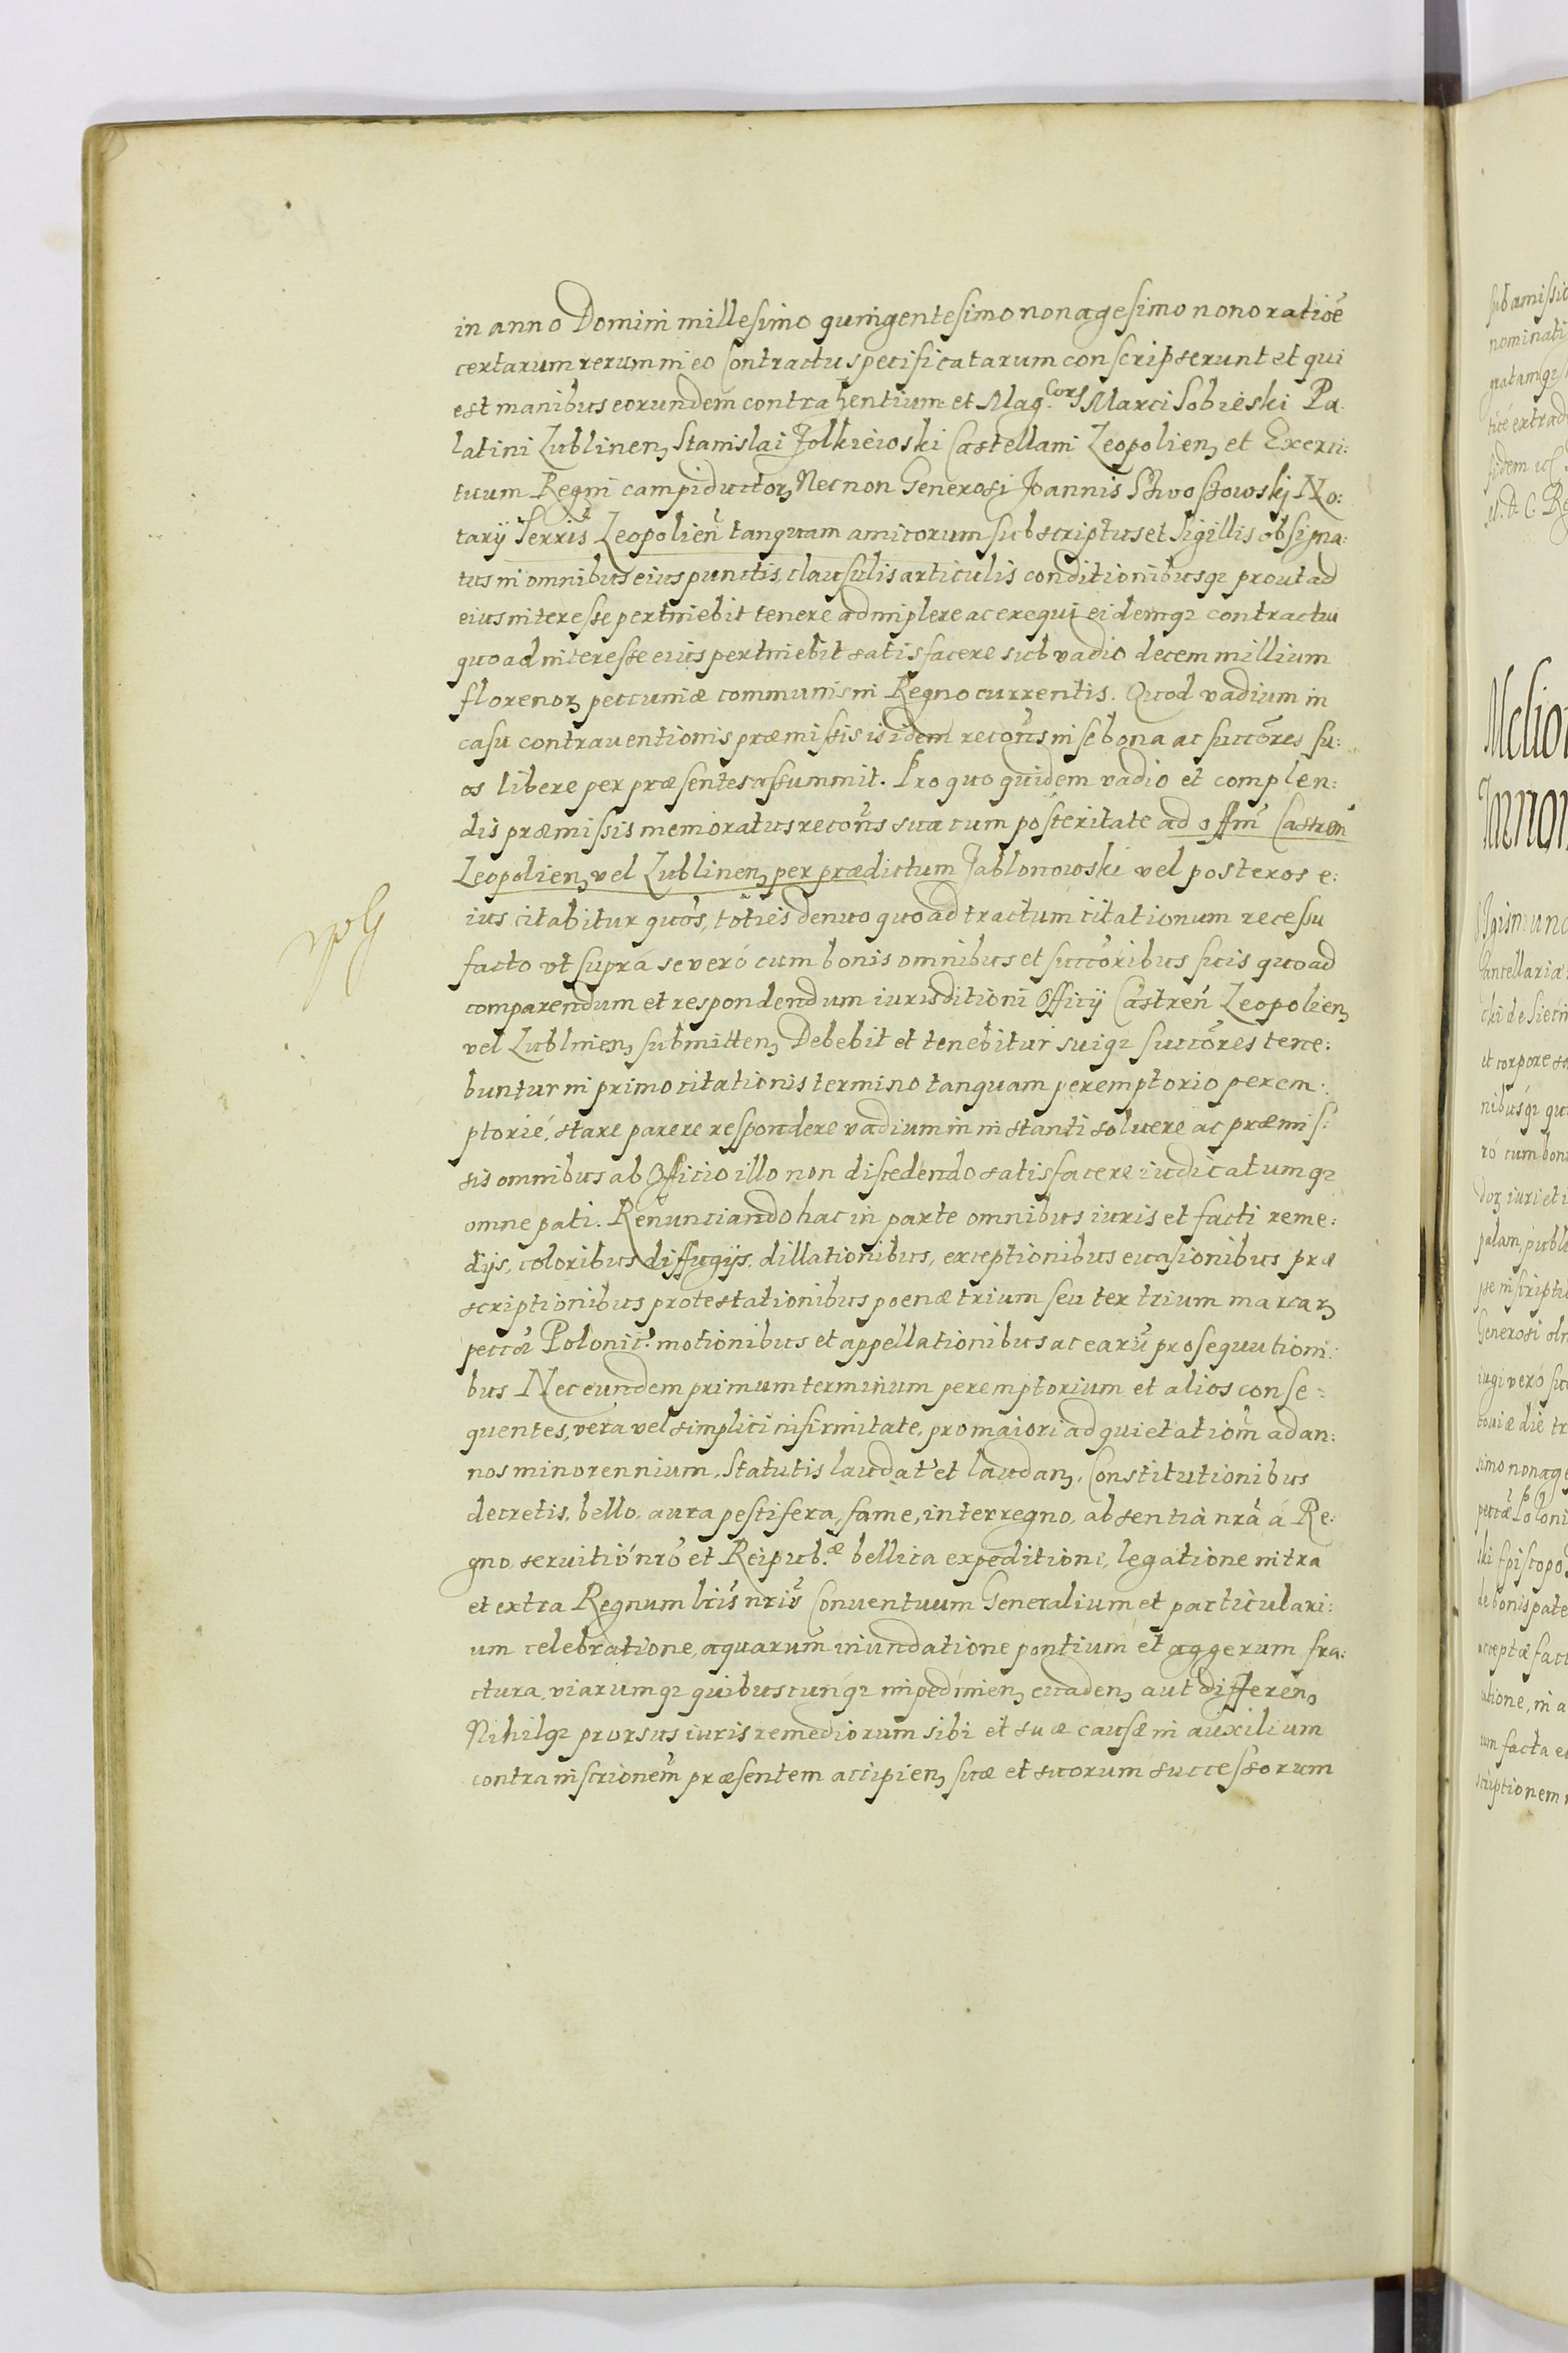 in anno Domini millesimo quingentesimo nonagesimo nono ratioẽ
certarum rerum in eo Contractu specificatarum conscripserunt et qui
est manibus eorundem contrahentium et Mag.corʒ Marci Sobieski Pa:
latini Lublinenʒ Stanislai Zolkiewski Castellani Leopolienʒ et Exerci:
tuum Regni campiductorʒ Necnon Generosi Joannis No:
tarij Terris Leopolien̄ tanquam amicorum subscriptus et Sigillis obsigna:
tus in omnibus eius punctis, clausulis articulis conditionibusqʒ prout ad
eius interesse pertinebit tenere adimplere ac exequi eidemqʒ contractui
quoad interesse eius pertinebit satisfacere sub vadio decem millium
florenorʒ pecuniæ communis in Regno currentis. Quod vadium in
casu contrauentionis præmissis is idem recon̄s in se bona ac succōres su:
os libere per præsentes assummit. Pro quo quidem vadio et complen:
dis præmissis memoratus recon̄s sua cum posteritate ad offm̄ Castren̄
Leopolienʒ vel Lublinenʒ per prædictum Jablonowski vel posteros e:
ius citabitur quōs, tōties denuo quoad tractum citationum recessu
facto vt supra se veró cum bonis omnibus et succōribus suis quoad
comparendum et respondendum iurisditioni Officij Castren̄ Leopolienʒ
vel Lublinenʒ submittenʒ Debebit et tenebitur suiqʒ succōres tene:
buntur in primo citationis termino tanquam peremptorio perem:
ptorié, stare parere respondere vadium in instanti soluere ac præmis:
sis omnibus ab Officio illo non discedendo satisfacere iudicatumqʒ
omne pati. Renunciando hac in parte omnibus iuris et facti reme:
dijs, coloribus diffugijs, dillationibus, exceptionibus euasionibus præ
scriptionibus protestationibus poenæ trium seu ter trium marcarʒ
Polonic: motionibus et appellationibus ac earū prosequutioni:
bus Nec eundem primum terminum peremptorium et alios conse:
quentes, vera vel simplici infirmitate, pro maiori ad quietatiom̄ ad an:
nos minorennium, Statutis laudat et laudanʒ, Constitutionibus
decretis, bello, aura pestifera, fame, interregno, absentia nrā á Re:
gno, seruitió nrō et Reipub.æ bellica expeditione, legatione intra
et extra Regnum Conuentuum Generalium et particulari:
um celebratione, aquarum inundatione pontium et aggerum fra:
ctura, viarumqʒ quibuscunqʒ impedimienʒ euadenʒ aut differenʒ
Nihilqʒ prorsus iuris remediorum sibi et suæ causæ in auxilium
contra inscrionem̄ præsentem accipienʒ suæ et suorum successorum
sub amissio
nominati
Melior
Jnnon
Cancellariæ
et corpore
ró cum boni
palam, puble
Generosi
simo nonage
Episcopo
de bonis pate
acceptæ fact
um facta
scriptionem